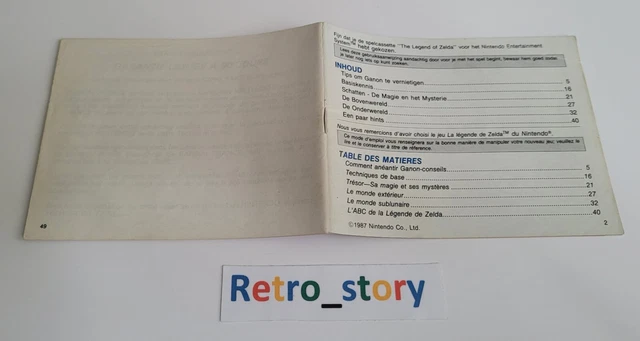 Fijn dat je de spelcassette "The Legend of Zelda" voor het Nintendo Entertainment
System™ hebt gekozen.
Lees deze gebruiksaanwijzing aandachtig door voor je met het spel begint, bewaar hem goed zodat
je later nog iets op kunt zoeken.
INHOUD
Tips om Ganon te vernietigen 5
Basiskennis 16
Schatten - De Magie en het Mysterie 21
De Bovenwereld 27
De Onderwereld 32
Een paar hints 40
Nous vous remercions d'avoir choisi le jeu La légende de Zelda™ du Nintendo®.
Ce mode d'emploi vous renseignera sur la bonne manière de manipuler votre nouveau jeu; veuillez le
lire et le conserver à titre de référence.
TABLE DES MATIERES
Comment anéantir Ganon-conseils 5
Techniques de base 16
Trésor—Sa magie et ses mystères 21
Le monde extérieur 27
Le monde sublunaire 32
L'ABC de la Légende de Zelda 40
©1987 Nintendo Co., Ltd.
2
49
Retro_story